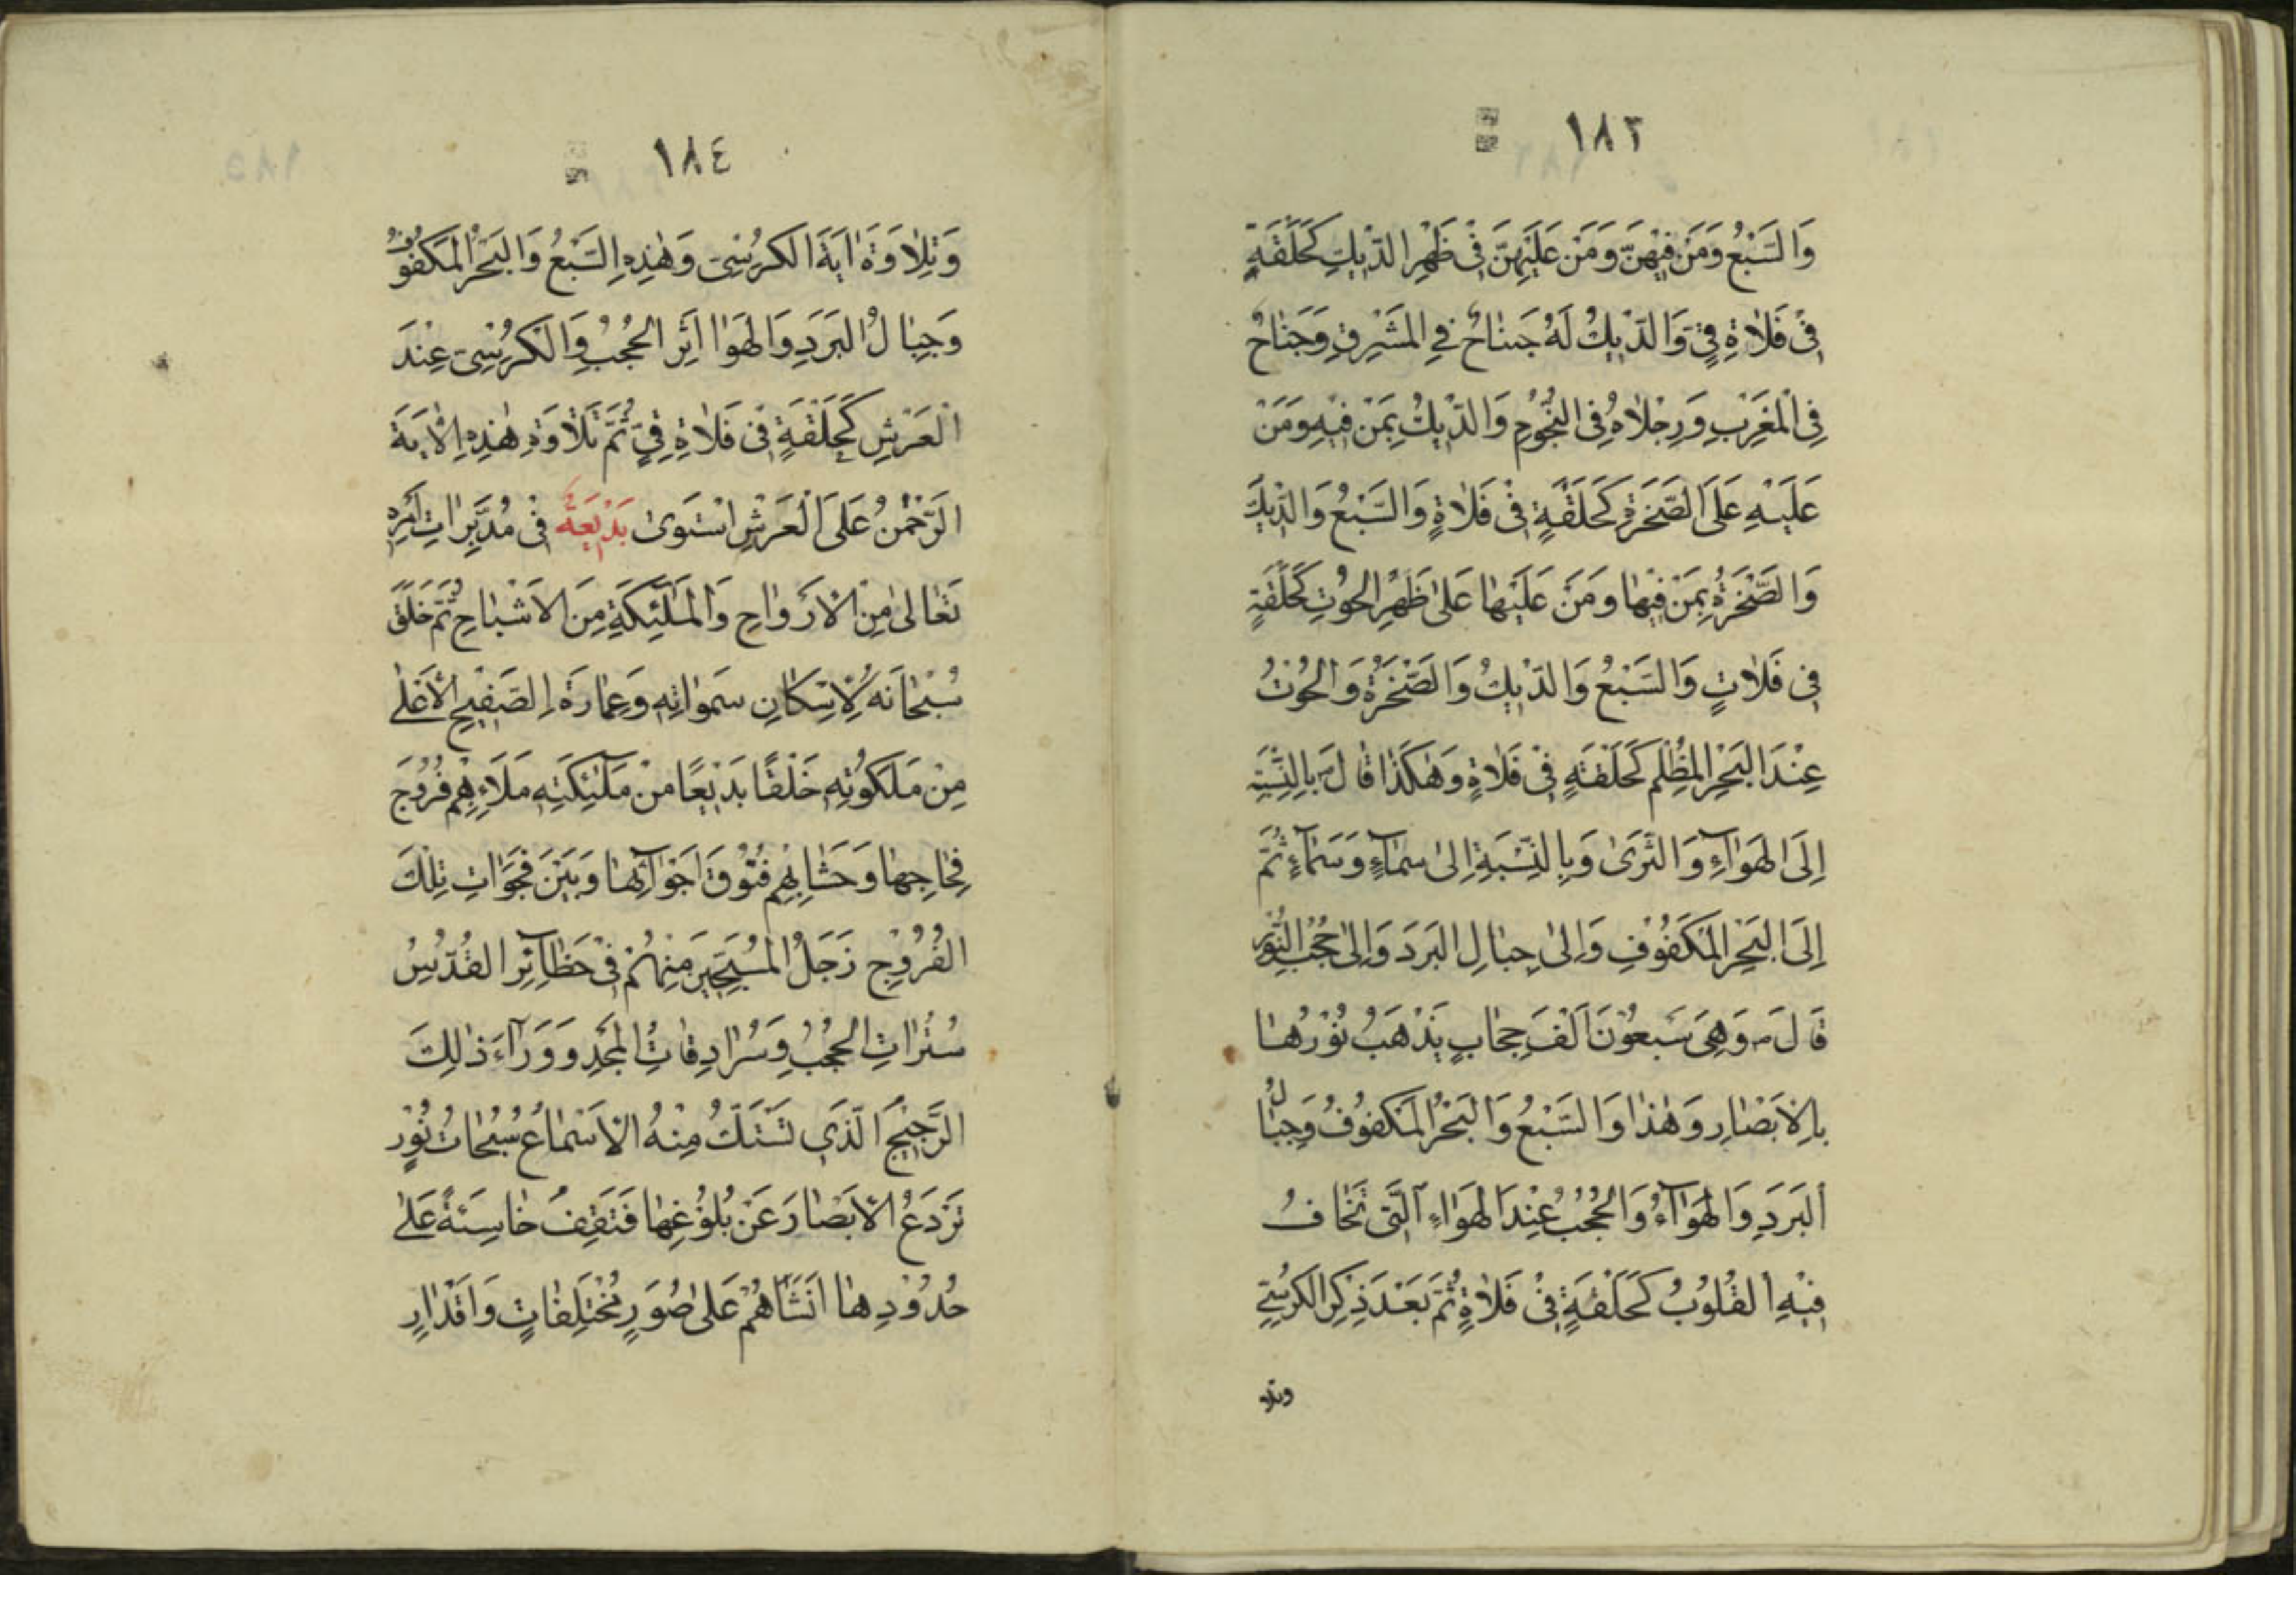 ١٨٣
وَالسَّبْعُ وَمَنْ فِيْهِنَّ وَمَنْ عَلَيْهِنَّ فِيْ ظَهْرِ الدِّيْكِ كَحَلْقَةٍ
فِيْ فَلَاةٍ قِيٍّ وَالدِّيْكُ لَهُ جَنَاحٌ فِي الْمَشْرِقِ وَجَنَاحٌ
فِي الْمَغْرِبِ وَرِجْلَاهُ فِي النُّجُوْمِ وَالدِّيْكُ بِمَنْ فِيْهِ وَمَنْ
عَلَيْهِ عَلَى الصَّخْرَةِ كَحَلْقَةٍ فِيْ فَلَاةٍ وَالسَّبْعُ وَالدِّيْكُ
وَالصَّخْرَةُ بِمَنْ فِيْهَا وَمَنْ عَلَيْهَا عَلَى ظَهْرِ الْحُوْتِ كَحَلْقَةٍ
فِيْ فَلَاتٍ وَالسَّبْعُ وَالدِّيْكُ وَالصَّخْرَةُ وَالْحُوْتُ
عِنْدَ الْبَحْرِ الْمُظْلِمِ كَحَلْقَةٍ فِيْ فَلَاةٍ وَهٰكَذَا قَالَ بِالنِّسْبَةِ
اِلَى الْهَوَاءِ وَالثَّرَى وَبِالنِّسْبَةِ اِلَى سَمَاءٍ وَسَمَاءٍ ثُمَّ
اِلَى الْبَحْرِ الْمَكْفُوْفِ وَاِلَى جِبَالِ الْبَرَدِ وَاِلَى حُجُبِ النُّوْرِ
قَالَ وَهِيَ سَبْعُوْنَ اَلْفَ حِجَابٍ يَذْهَبُ نُوْرُهَا
بِالْاَبْصَارِ وَهٰذَا وَالسَّبْعُ وَالْبَحْرُ الْمَكْفُوْفُ وَجِبَالُ
الْبَرَدِ وَالْهَوَاءُ وَالْحُجُبُ عِنْدَ الْهَوَاءِ الَّتِيْ تَخَافُ
فِيْهِ الْقُلُوْبُ كَحَلْقَةٍ فِيْ فَلَاةٍ ثُمَّ بَعْدَ ذِكْرِ الْكُرْسِيِّ
وتلا
١٨٤
وَتِلَاوَةَ اٰيَةَ الْكُرْسِيِّ وَهٰذِهِ السَّبْعُ وَالْبَحْرُ الْمَكْفُوْفُ
وَجِبَالُ الْبَرَدِ وَالْهَوَا اَثِرَ الْحُجُبُ وَالْكُرْسِيّ عِنْدَ
الْعَرْشِ كَحَلْقَةٍ فِيْ فَلَاةٍ قِيٍّ ثُمَّ تَلَاوَةِ هٰذِهِ الْاٰيَةَ
الرَّحْمٰنُ عَلَى الْعَرْشِ اسْتَوَى بَدْيَعَةٌ فِيْ مُدَبِّرَاتِ اَمْرِهِ
تَعَالَى مِنَ الْاَرْوَاحِ وَالْمَلٰئِكَةِ مِنَ الْاَشْبَاحِ ثُمَّ خَلَقَ
سُبْحَانَهُ لِاِسْكَانِ سَمٰوَاتِهِ وَعِمَارَةِ الصَّفِيْحِ الْاَعْلٰى
مِنْ مَلَكُوْتِهِ خَلْقًا بَدِيْعًا مِنْ مَلٰئِكَتِهِ مَلَاءَ بِهِمْ فُرُوْجَ
فِجَاجِهَا وَحَشَا بِهِمْ فُتُوْقَ اَجْوَائِهَا وَبَيْنَ فَجَوَاتِ تِلْكَ
الْفُرُوْجِ زَجَلُ الْمُسَبِّحِيْنَ مِنْهُمْ فِيْ حَظَائِرِ الْقُدْسِ
سُتُرَاتِ الْحُجُبِ وَسُرَادِقَاتُ الْمَجْدِ وَوَرَاءَ ذٰلِكَ
الرَّجِيْجَ الَّذِيْ تَسْتَكُّ مِنْهُ الْاَسْمَاعُ سُبُحَاتُ نُوْرٍ
تَرْدَعُ الْاَبْصَارَ عَنْ بُلُوْغِهَا فَتَقِفُ خَاسِئَةً عَلٰى
حُدُوْدِهَا اَنْشَاَهُمْ عَلٰى صُوَرٍ مُخْتَلِفَاتٍ وَاَقْدَارٍ